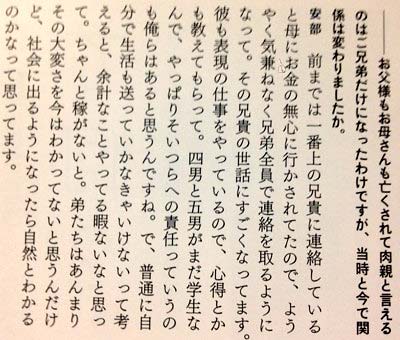 ――お父様もお母さんも亡くされて肉親と言える
のはご兄弟だけになったわけですが、当時と今で関
係は変わりましたか。
安部　前までは一番上の兄貴に連絡している
と母にお金の無心に行かされてたので、よう
やく気兼ねなく兄弟全員で連絡を取るように
なって。その兄貴の世話にすごくなってます。
彼も表現の仕事をやっているので、心得とか
も教えてもらって。四男と五男がまだ学生な
んで、やっぱりそいつらへの責任っていうの
も俺らはあると思うんですね。で、普通に自
分で生活も送っていかなきゃいけないって考
えると、余計なことやってる暇ないなと思っ
て。ちゃんと稼がないと。弟たちはあんまり
その大変さを今はわかってないと思うんだけ
ど、社会に出るようになったら自然とわかる
のかなって思ってます。